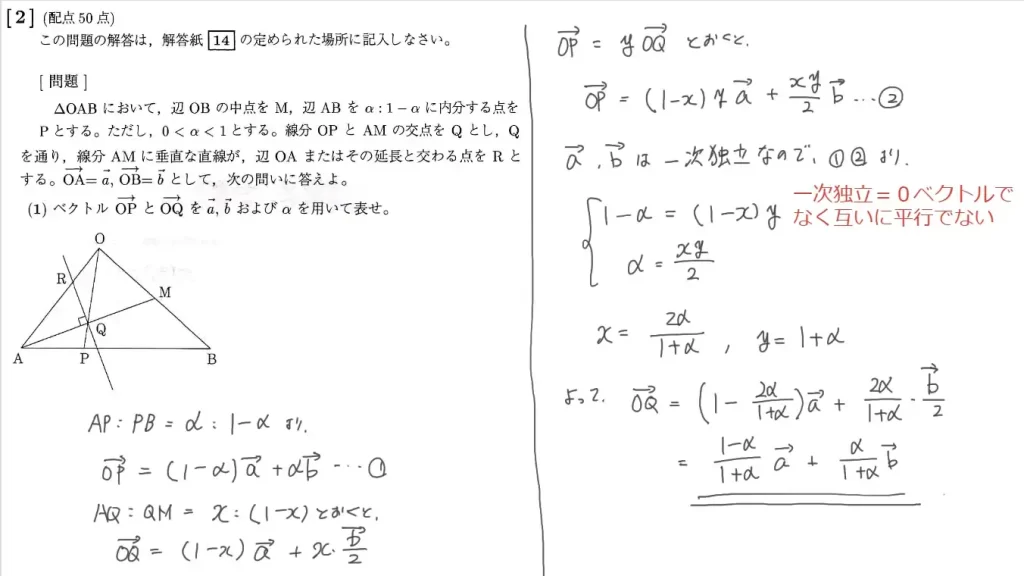 [2] (配点50点)
この問題の解答は，解答紙 14 の定められた場所に記入しなさい。
[問題]
△OAB において，辺 OB の中点を M，辺 AB を α : 1 − α に内分する点を
P とする。ただし，0 < α < 1 とする。線分 OP と AM の交点を Q とし，Q
を通り，線分 AM に垂直な直線が，辺 OA またはその延長と交わる点を R と
する。$\overrightarrow{OA}=\vec{a}$, $\overrightarrow{OB}=\vec{b}$ として，次の問いに答えよ。
(1) ベクトル $\overrightarrow{OP}$ と $\overrightarrow{OQ}$ を $\vec{a}, \vec{b}$ および α を用いて表せ。
O
R
M
Q
A
P
B
AP : PB = α : 1−α より、
$\overrightarrow{OP} = (1-α)\vec{a} + α\vec{b}$ … ①
AQ : QM = x : (1−x) とおくと、
$\overrightarrow{OQ} = (1-x)\vec{a} + x \cdot \frac{\vec{b}}{2}$
$\overrightarrow{OP} = y\overrightarrow{OQ}$ とおくと、
$\overrightarrow{OP} = (1-x)y\vec{a} + \frac{xy}{2}\vec{b}$ … ②
$\vec{a}, \vec{b}$ は一次独立なので、①②より、
1−α = (1−x)y
α = $\frac{xy}{2}$
一次独立＝０ベクトルで
なく互いに平行でない
x = $\frac{2α}{1+α}$ , y = 1+α
よって、$\overrightarrow{OQ} = (1-\frac{2α}{1+α})\vec{a} + \frac{2α}{1+α} \cdot \frac{\vec{b}}{2}$
= $\frac{1-α}{1+α}\vec{a} + \frac{α}{1+α}\vec{b}$